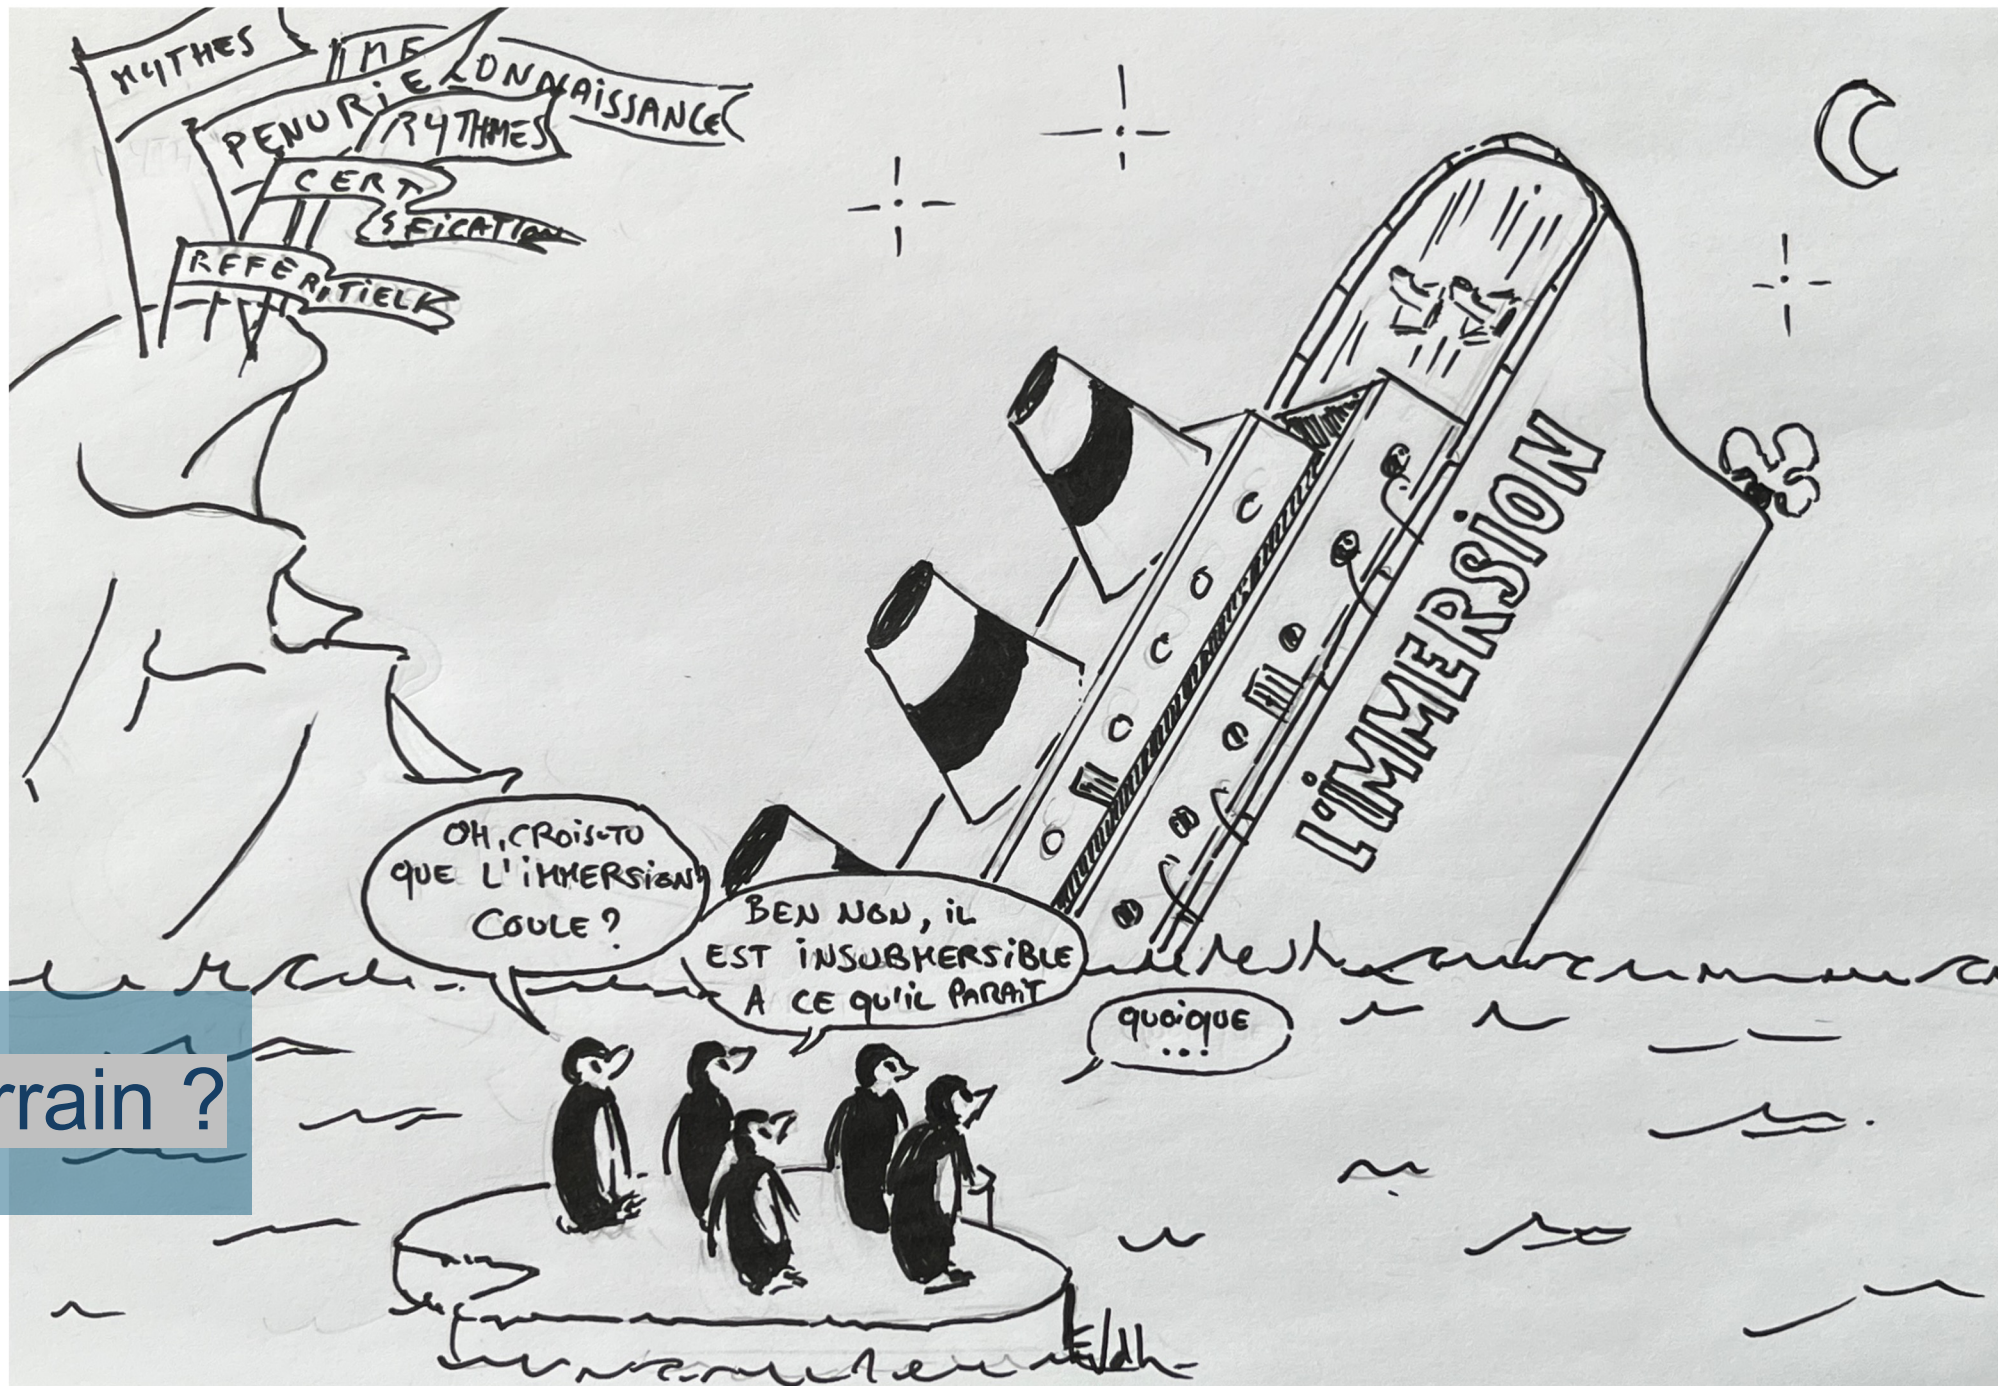 MYTHES
MECONNAISSANCE
PENURIE
RYTHMES
CERT
IFICATION
REFERENTIELS
L'IMMERSION
OH, CROIS-TU
QUE L'IMMERSION
COULE ?
BEN NON, IL
EST INSUBMERSIBLE
A CE QU'IL PARAIT
QUOIQUE
...
rrain ?